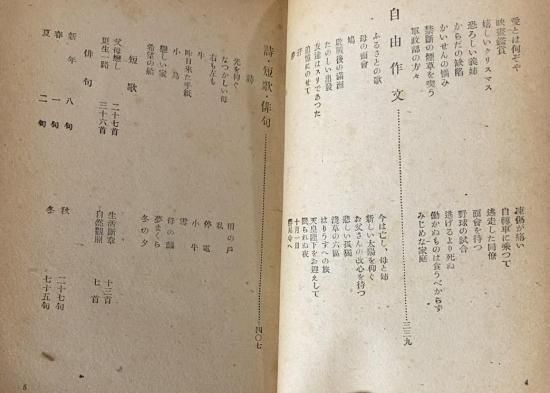 愛とは何ぞや
映画鑑賞
嬉しいクリスマス
恐ろしい義姉
からだの缺陷
かいせんの悩み
禁断の煙草を喫う
軍政部の方々
凍傷が痛い
自轉車に乗つて
逃走した同僚
面會を待つ
野球の試合
逃げるより死ぬ
働かぬものは食うべからず
みじめな家庭
自由作文
三三九
ふるさとの歌
母の面會
鳩
敗戰後の滿洲
たのしい出發
友達はスリであつた
追憶にのせて
今は亡し、母と姉
新しい太陽を仰ぐ
お父さんの改心を待つ
悲しい孤獨
淺草の六區
はりうすへの旅
天皇陛下をお迎えして
十月一日
眠られぬ夜
4
詩・短歌・俳句
四〇七
詩
光を仰ぐ
なつかしい母
右も左も
牛
昨日來た手紙
小鳥
戀しい家
希望の船
雨の戸
私
停電
小牛
雪
母の顔
夢まくら
冬の夕
短歌
父母戀し 二十七首
更生一路 三十六首
生活斷章 十三首
自然觀照 七首
俳句
新年 八句
春 一句
夏 二句
秋 二十七句
冬 七十五句
5